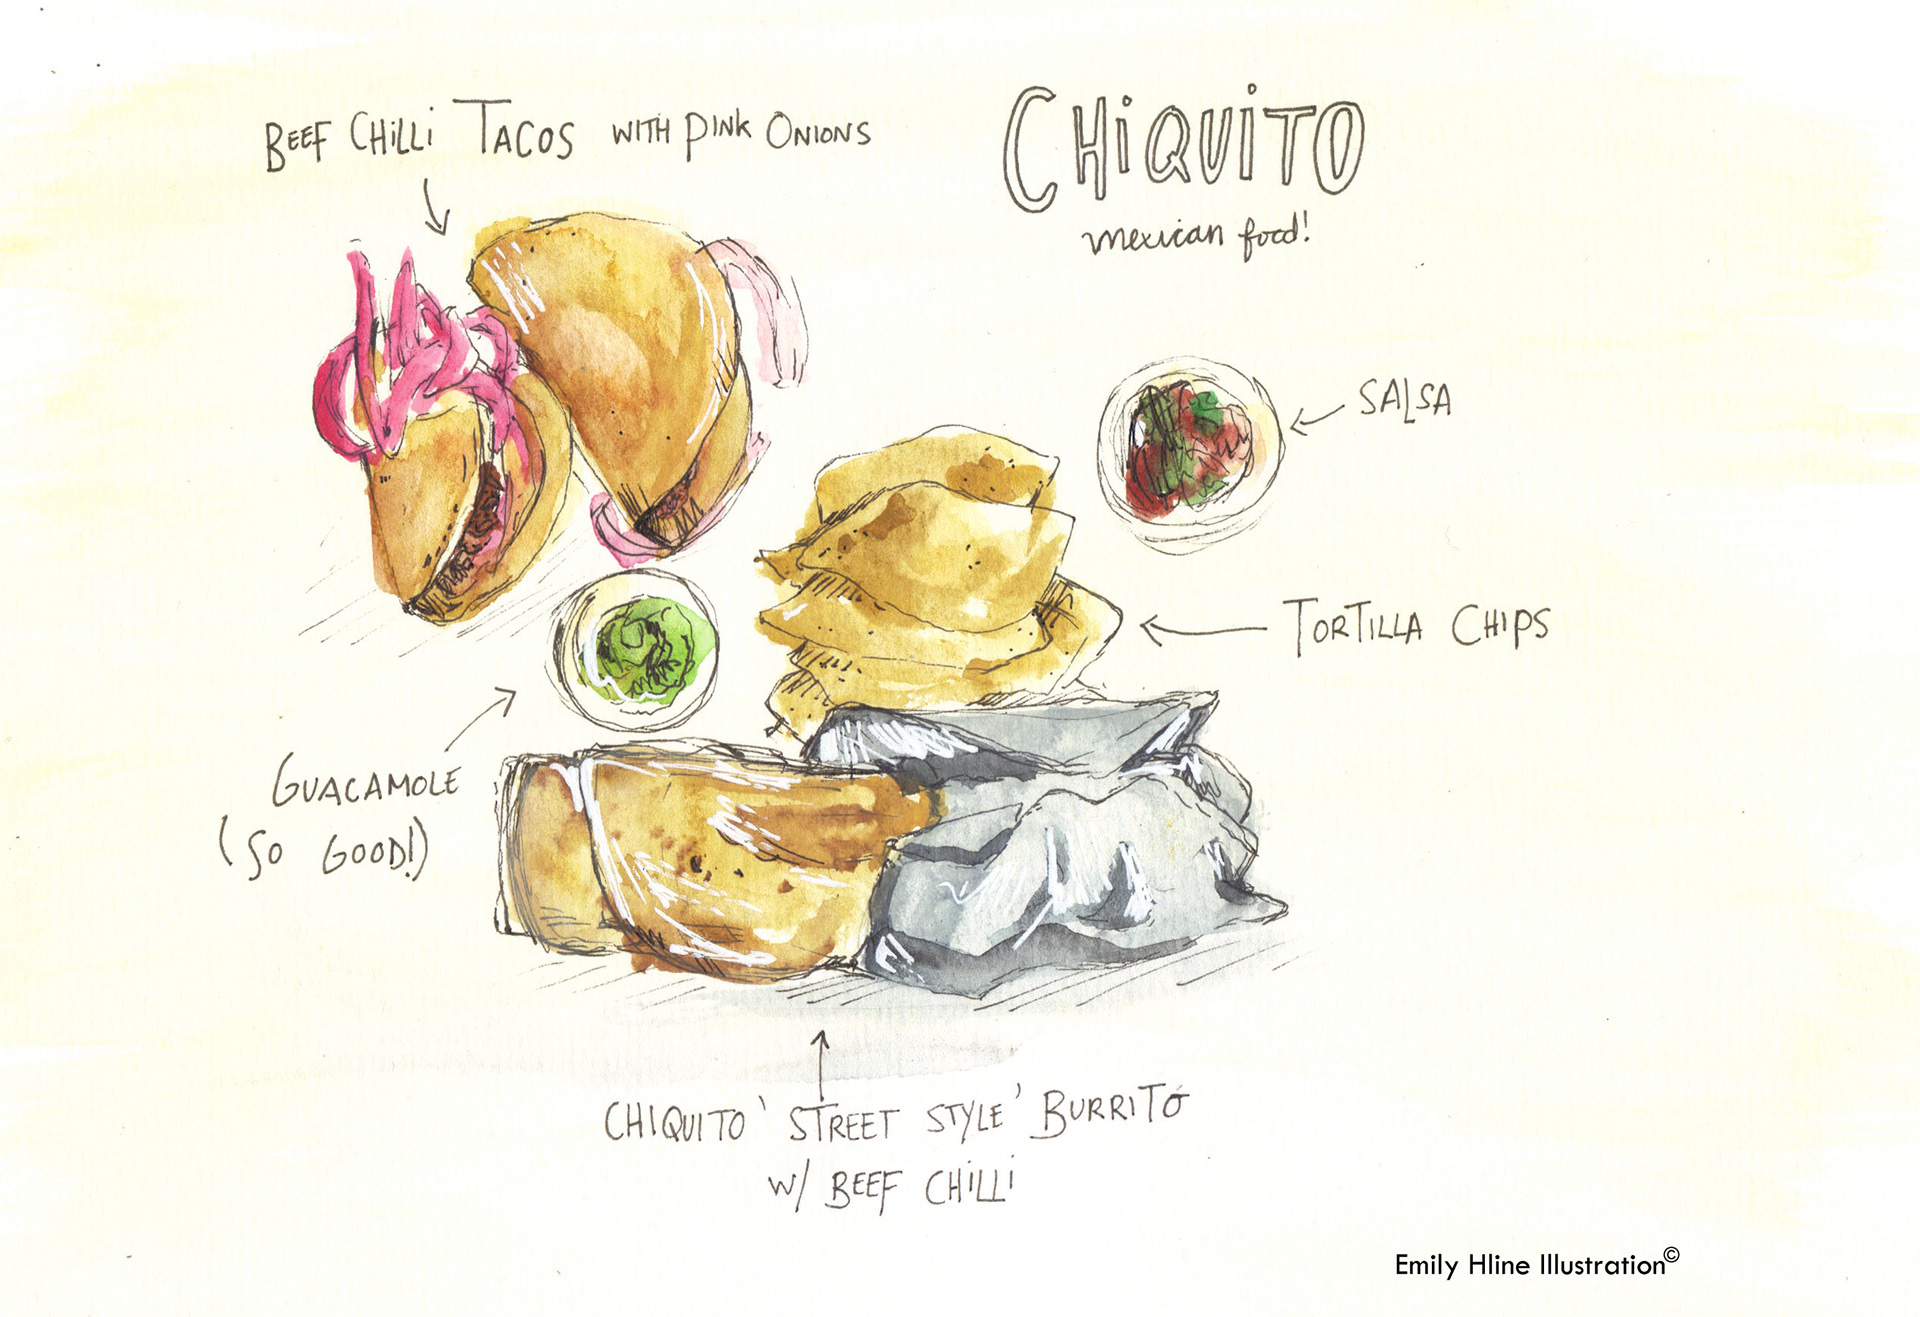 BEEF CHiLLi TACOS WITH PINK ONIONS
CHiQUiTO
mexican food!
SALSA
TORTILLA CHIPS
GUACAMOLE
(SO GOOD!)
CHIQUITO 'STREET STYLE' BURRITO
W/ BEEF CHILLI
Emily Hline Illustration©